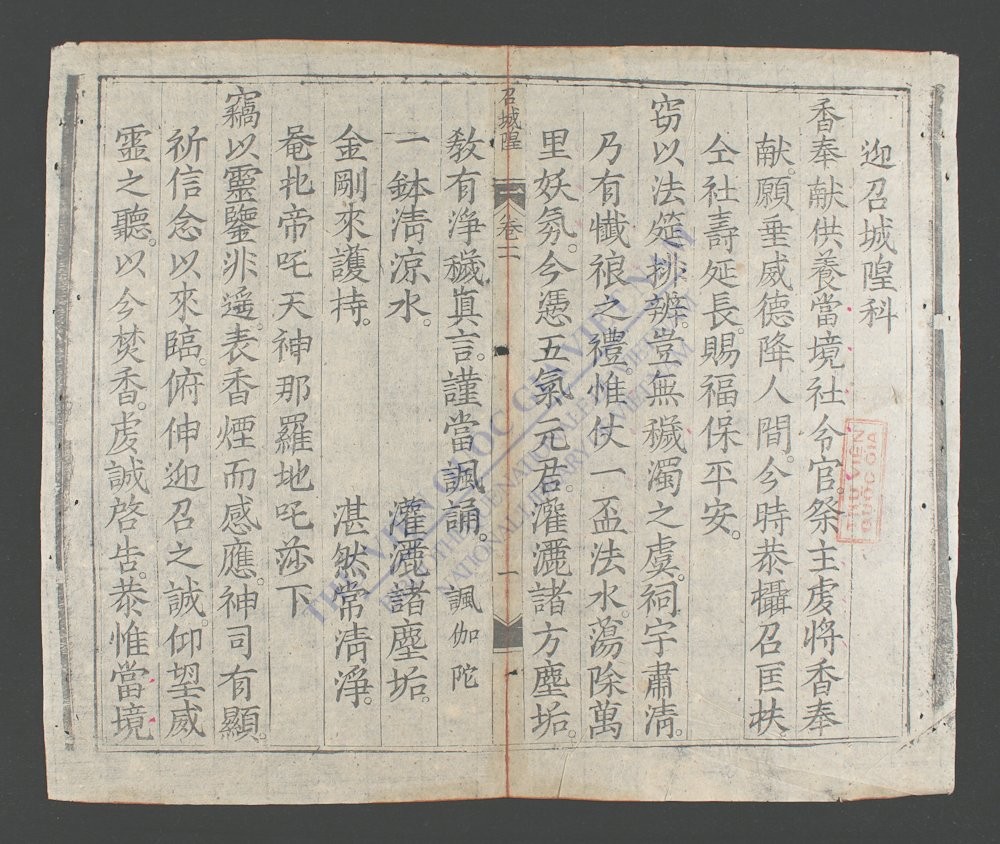 迎召城隍科
香奉献供養當境社令官祭主虔將香奉
献。願垂威德降人間。今時恭攝召匡扶
仝社壽延長。賜福保平安。
窃以法筵排辨。豈無穢濁之虞。祠宇肅清。
乃有懺禳之禮。惟仗一盃法水。蕩除萬
里妖氛。今憑五氣元君。灌灑諸方塵垢。
召城隍 卷二 一
教有淨穢眞言。謹當諷誦。 諷伽陀
一鉢清凉水。 灌灑諸塵垢。
金剛來護持。 湛然常清淨。
菴𠃵帝吒天神那羅地吒莎下
竊以靈鑒非遥。表香煙而感應。神司有顯。
祈信念以來臨。俯伸迎召之誠。仰望威
靈之聽。以今焚香。虔誠啓告。恭惟當境
THƯ VIỆN QUỐC GIA VIỆT NAM
NATIONAL LIBRARY OF VIETNAM
THƯ VIỆN
QUỐC GIA